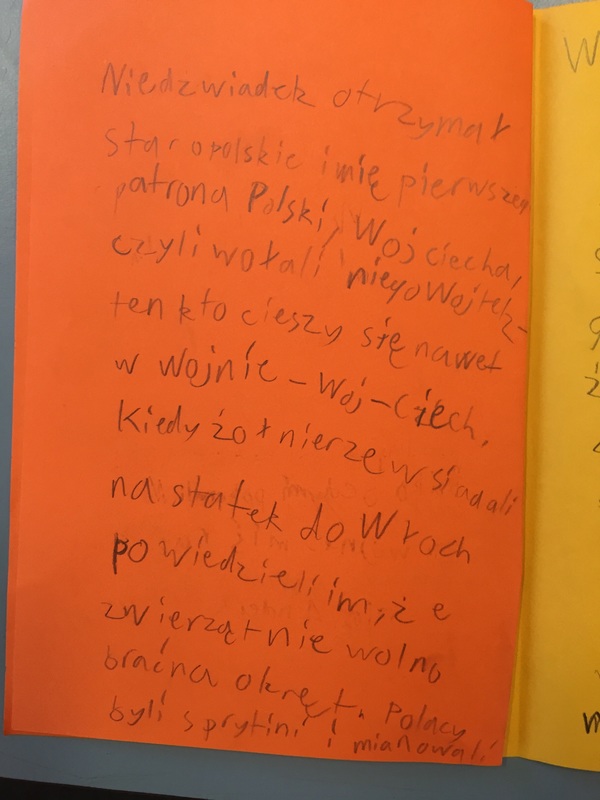 Niedzwiadek otrzymał
staropolskie imię pierwszego
patrona Polski, Wojciecha,
czyli wołali niego Wojtek-
ten kto cieszy się nawet
w wojnie - Woj-Ciech.
Kiedy żołnierze wsiadali
na statek do Włoch
powiedzieli im, że
zwierząt nie wolno
brać na okręt. Polacy
byli sprytini i mianowali
W